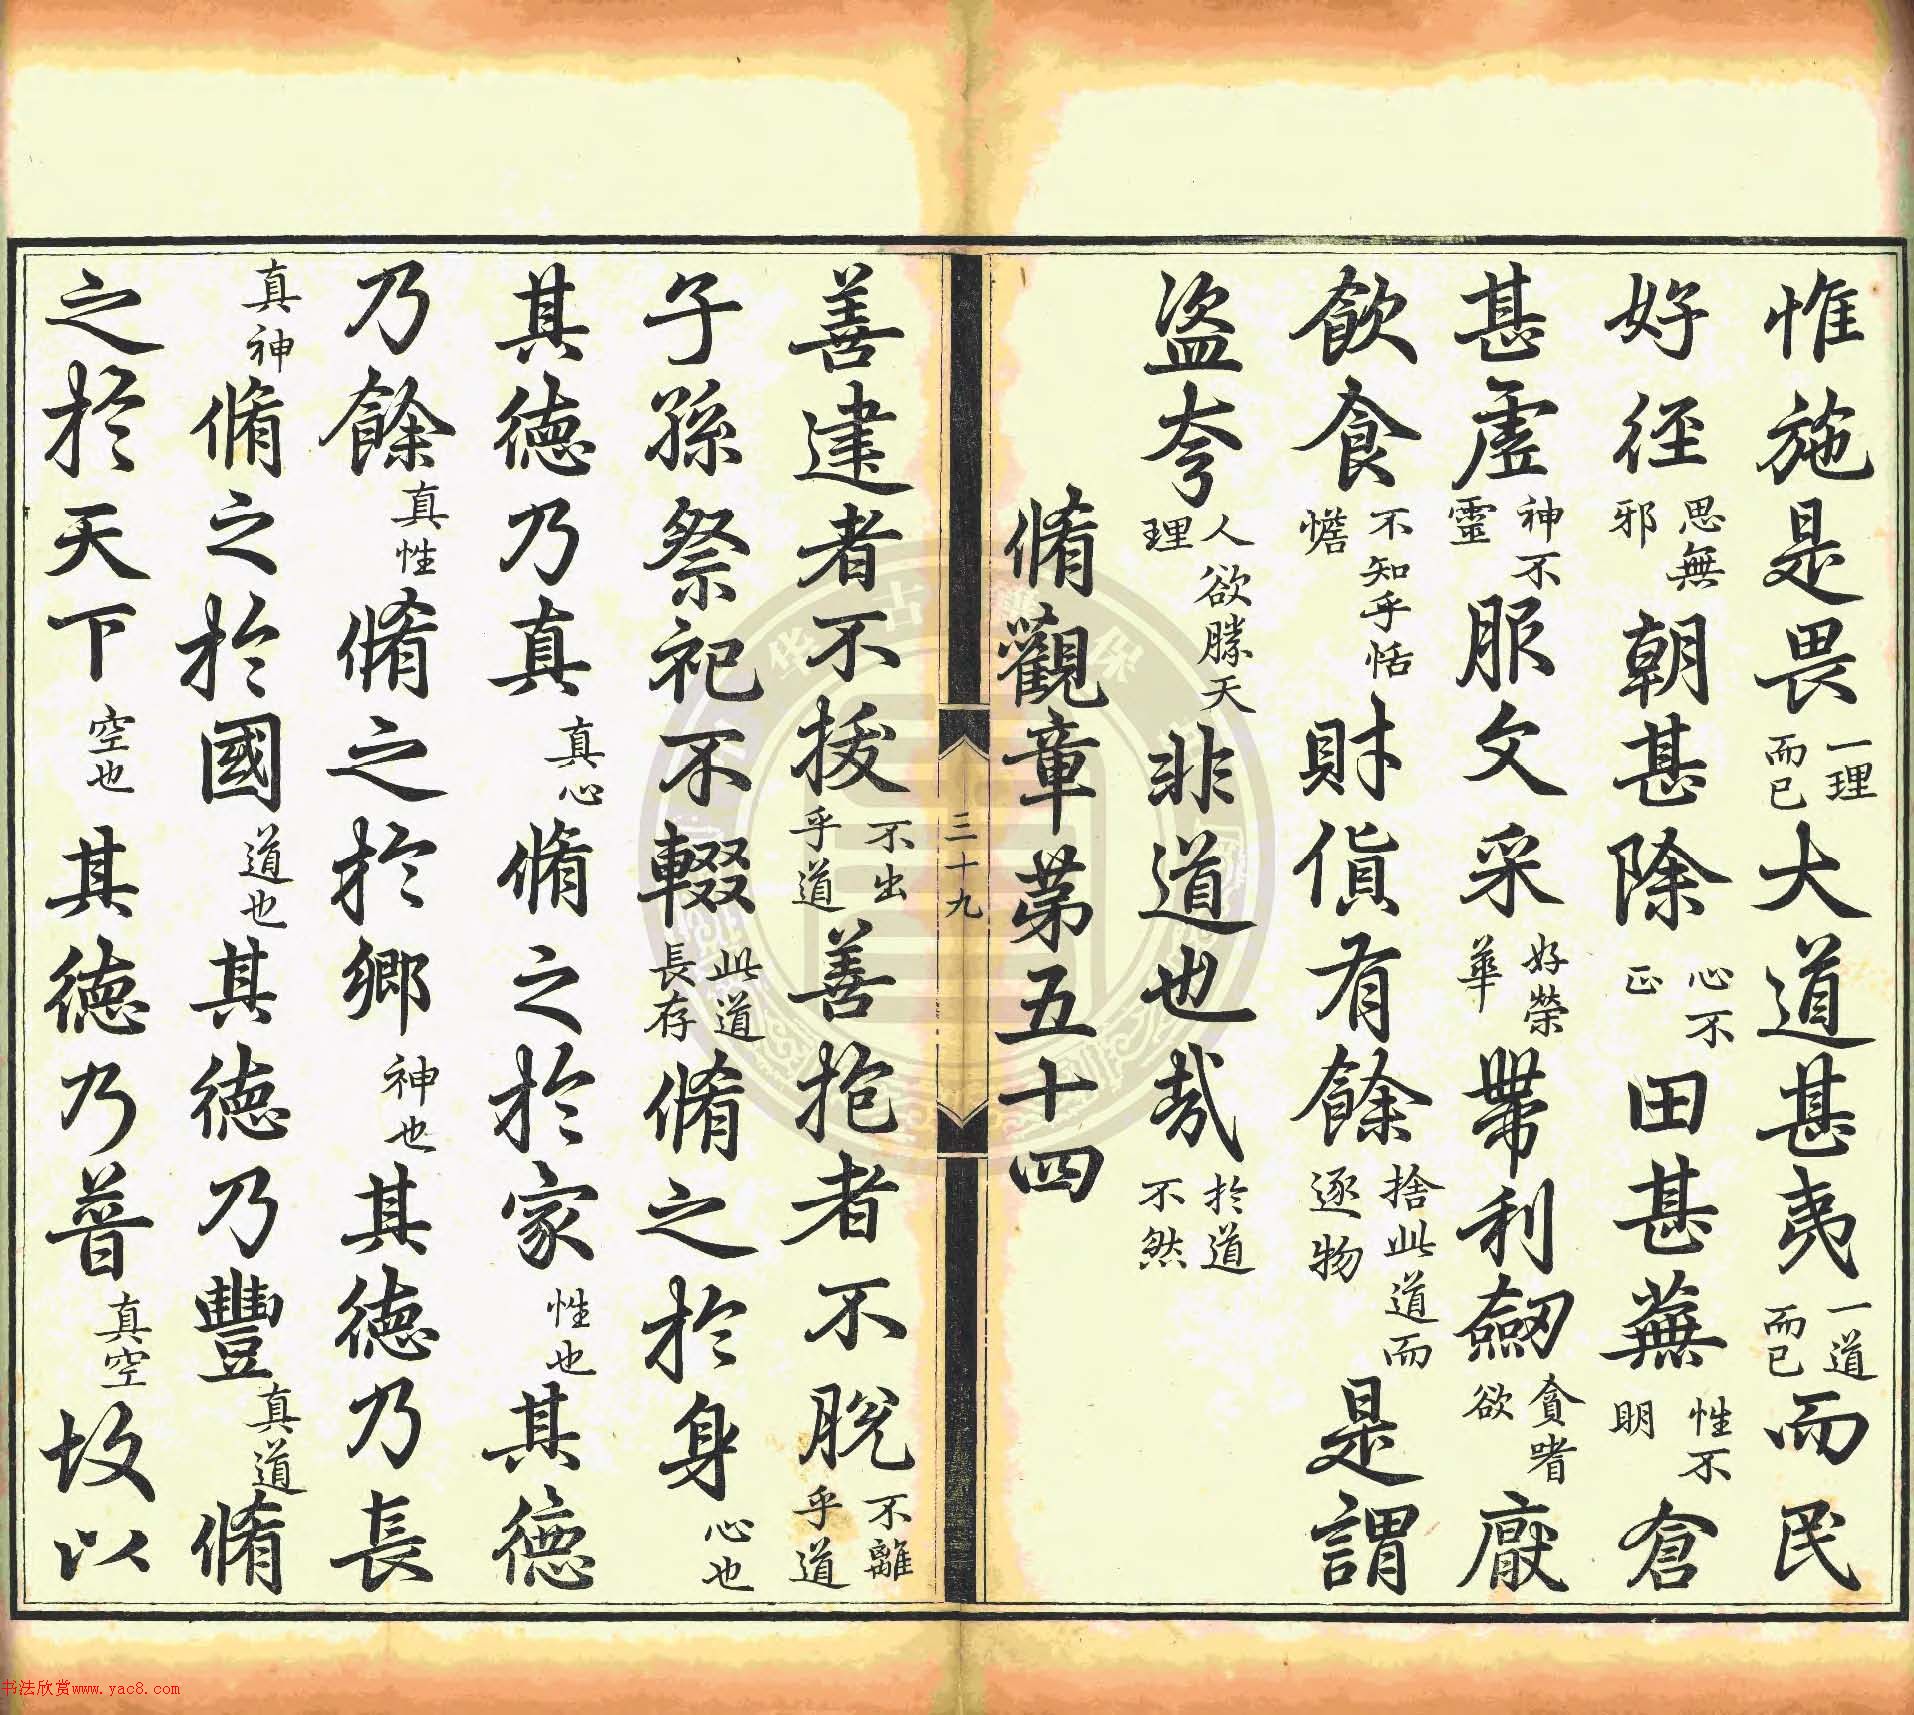 惟施是畏一理而已大道甚夷一道而已而民
好径思無邪朝甚除心不正田甚蕪性不明倉
甚虚神不靈服文采好榮華帶利劒貪嗜欲厭
飲食不知乎恬憺財貨有餘捨此道而逐物是謂
盜夸人欲勝天理非道也哉於道不然
脩觀章第五十四
三十九
善建者不拔不出乎道善抱者不脫不離乎道
子孫祭祀不輟此道長存脩之於身心也
其德乃真真心脩之於家性也其德
乃餘真性脩之於鄉神也其德乃長
真神脩之於國道也其德乃豐真道脩
之於天下空也其德乃普真空故以
书法欣赏www.yac8.com